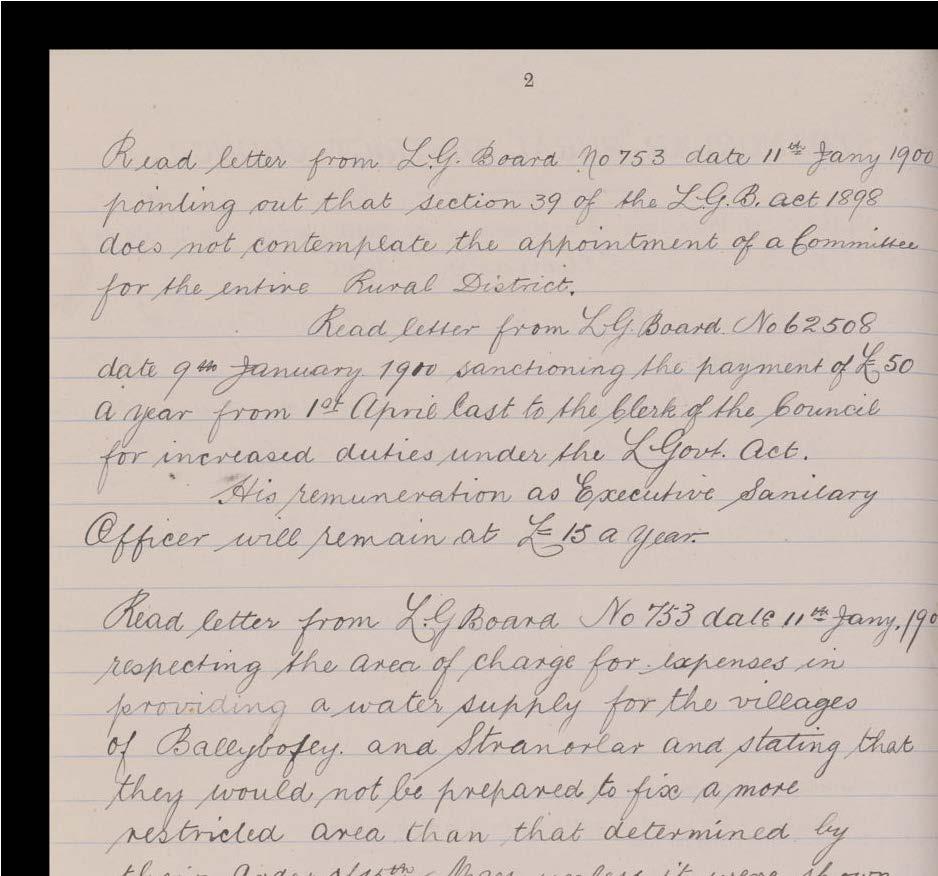 2
Read letter from L.G. Board No 753 date 11th Jany 1900
pointing out that section 39 of the L.G.B. act 1898
does not contemplate the appointment of a Committee
for the entire Rural District.
Read letter from L.G. Board No 62508
date 9th January 1900 sanctioning the payment of £50
a year from 1st April last to the Clerk of the Council
for increased duties under the L Govt. Act.
His remuneration as Executive Sanitary
Officer will remain at £15 a year.
Read letter from L.G Board No 753 date 11th Jany. 190
respecting the area of charge for expenses in
providing a water supply for the villages
of Ballybofey. and Stranorlar and stating that
they would not be prepared to fix a more
restricted area than that determined by
their Order of May unless it were shown